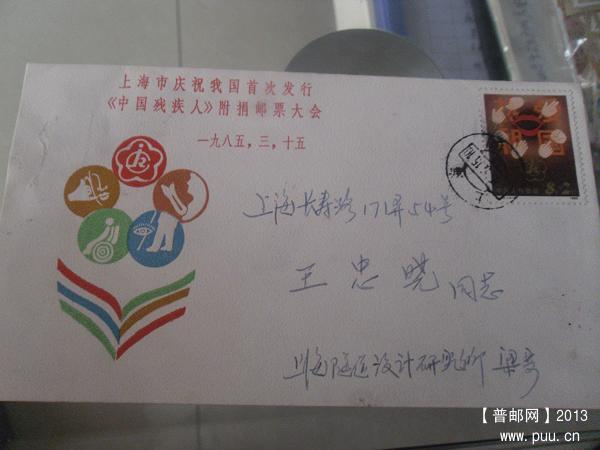 上海市庆祝我国首次发行
《中国残疾人》附捐邮票大会
一九八五，三，十五
8+2
上海长寿路171弄54号
王忠晓 同志
上海隧道设计研究所 梁
【普邮网】2013
www.puu.cn